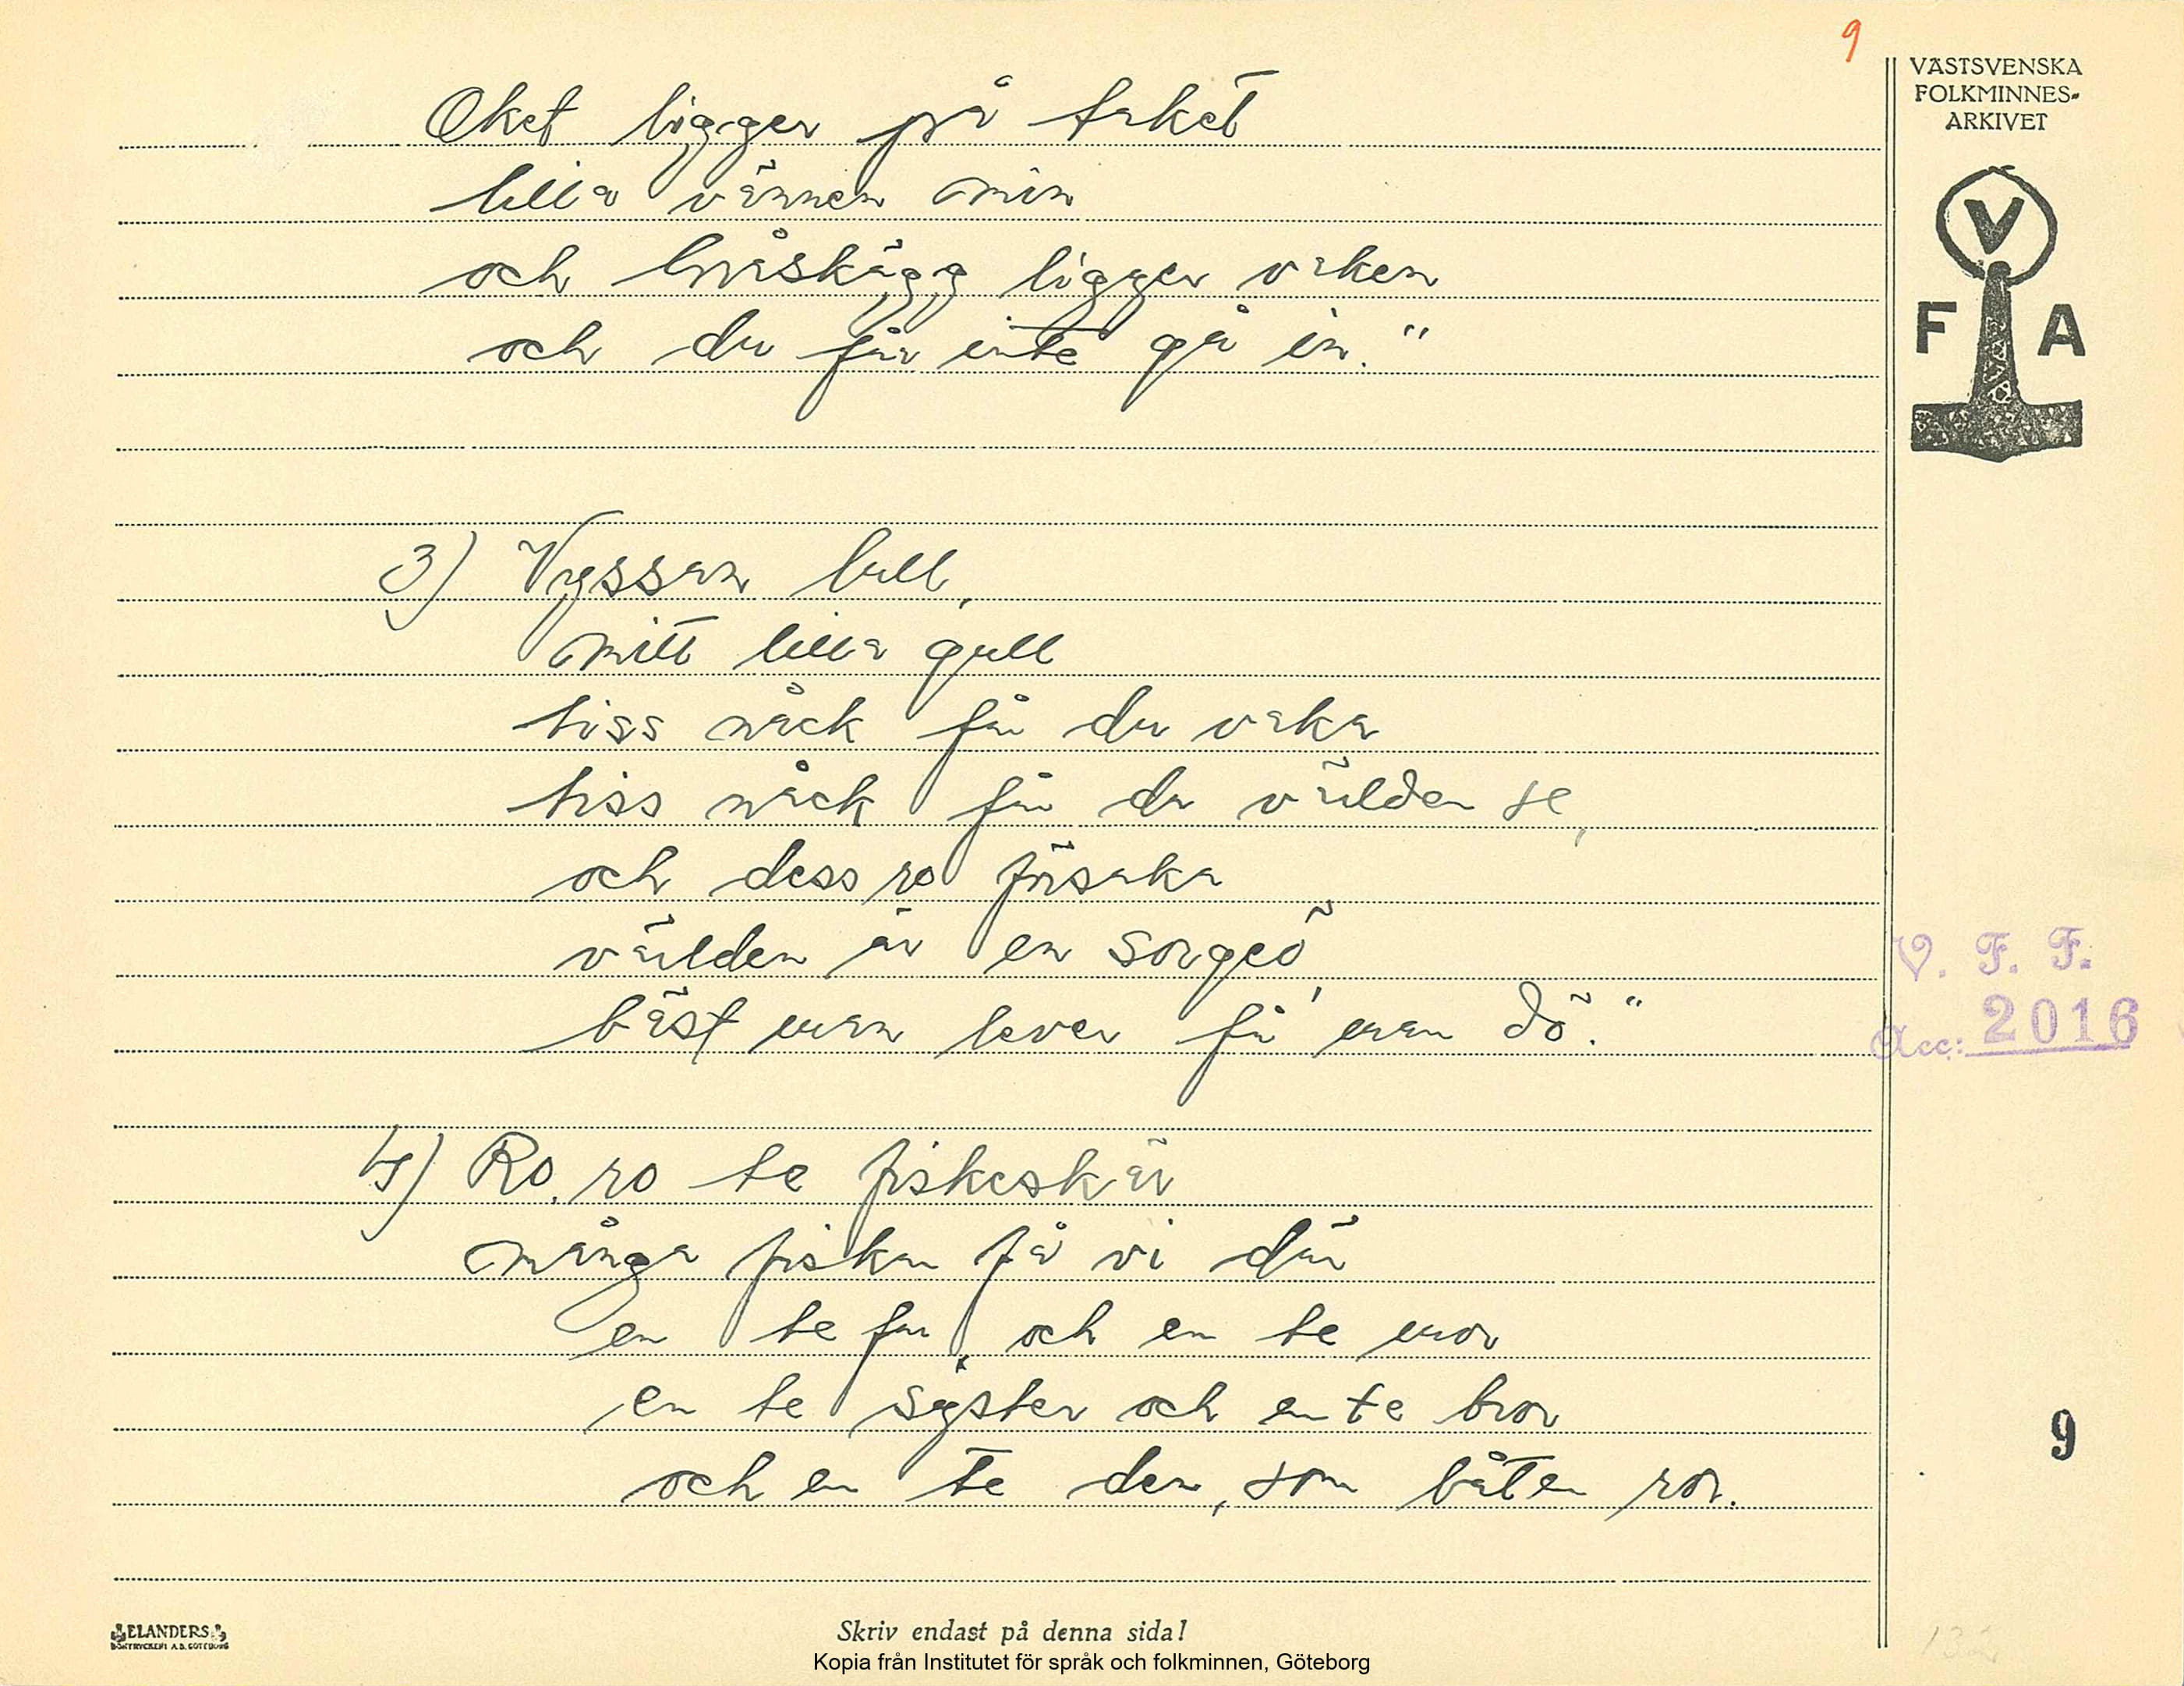 9
VÄSTSVENSKA
FOLKMINNES-
ARKIVET
V
F A
Oket ligger på taket
lilla vännen min
och blåskägg ligger vaken
och du får inte gå in."
3) Vyssan lull,
mitt lilla gull
tiss nåck får du vaka
tiss nåck får du välden se,
och dess ro försaka
välden är en sorgeö,
bäst man lever får man dö."
4) Ro, ro te fiskeskär
många fiskar få vi där
en te far, och en te mor
en te syster och en te bror
och en te den, som båten ror.
V. F. F.
Acc: 2016
9
ELANDERS
BOKTRYCKERI A.B. GÖTEBORG
Skriv endast på denna sida!
Kopia från Institutet för språk och folkminnen, Göteborg